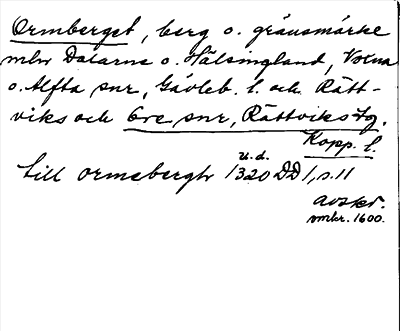 Ormberget, berg o. gränsmärke
mlw Dalarne o. Hälsingland, Voxna
o. Alfta snr, Gävleb. l. och Rätt-
viks och Ore snr, Rättviks tg.
Kopp. l.
u. d.
till ormebergit 1320 DD 1, s. 11
avskr.
omkr. 1600.